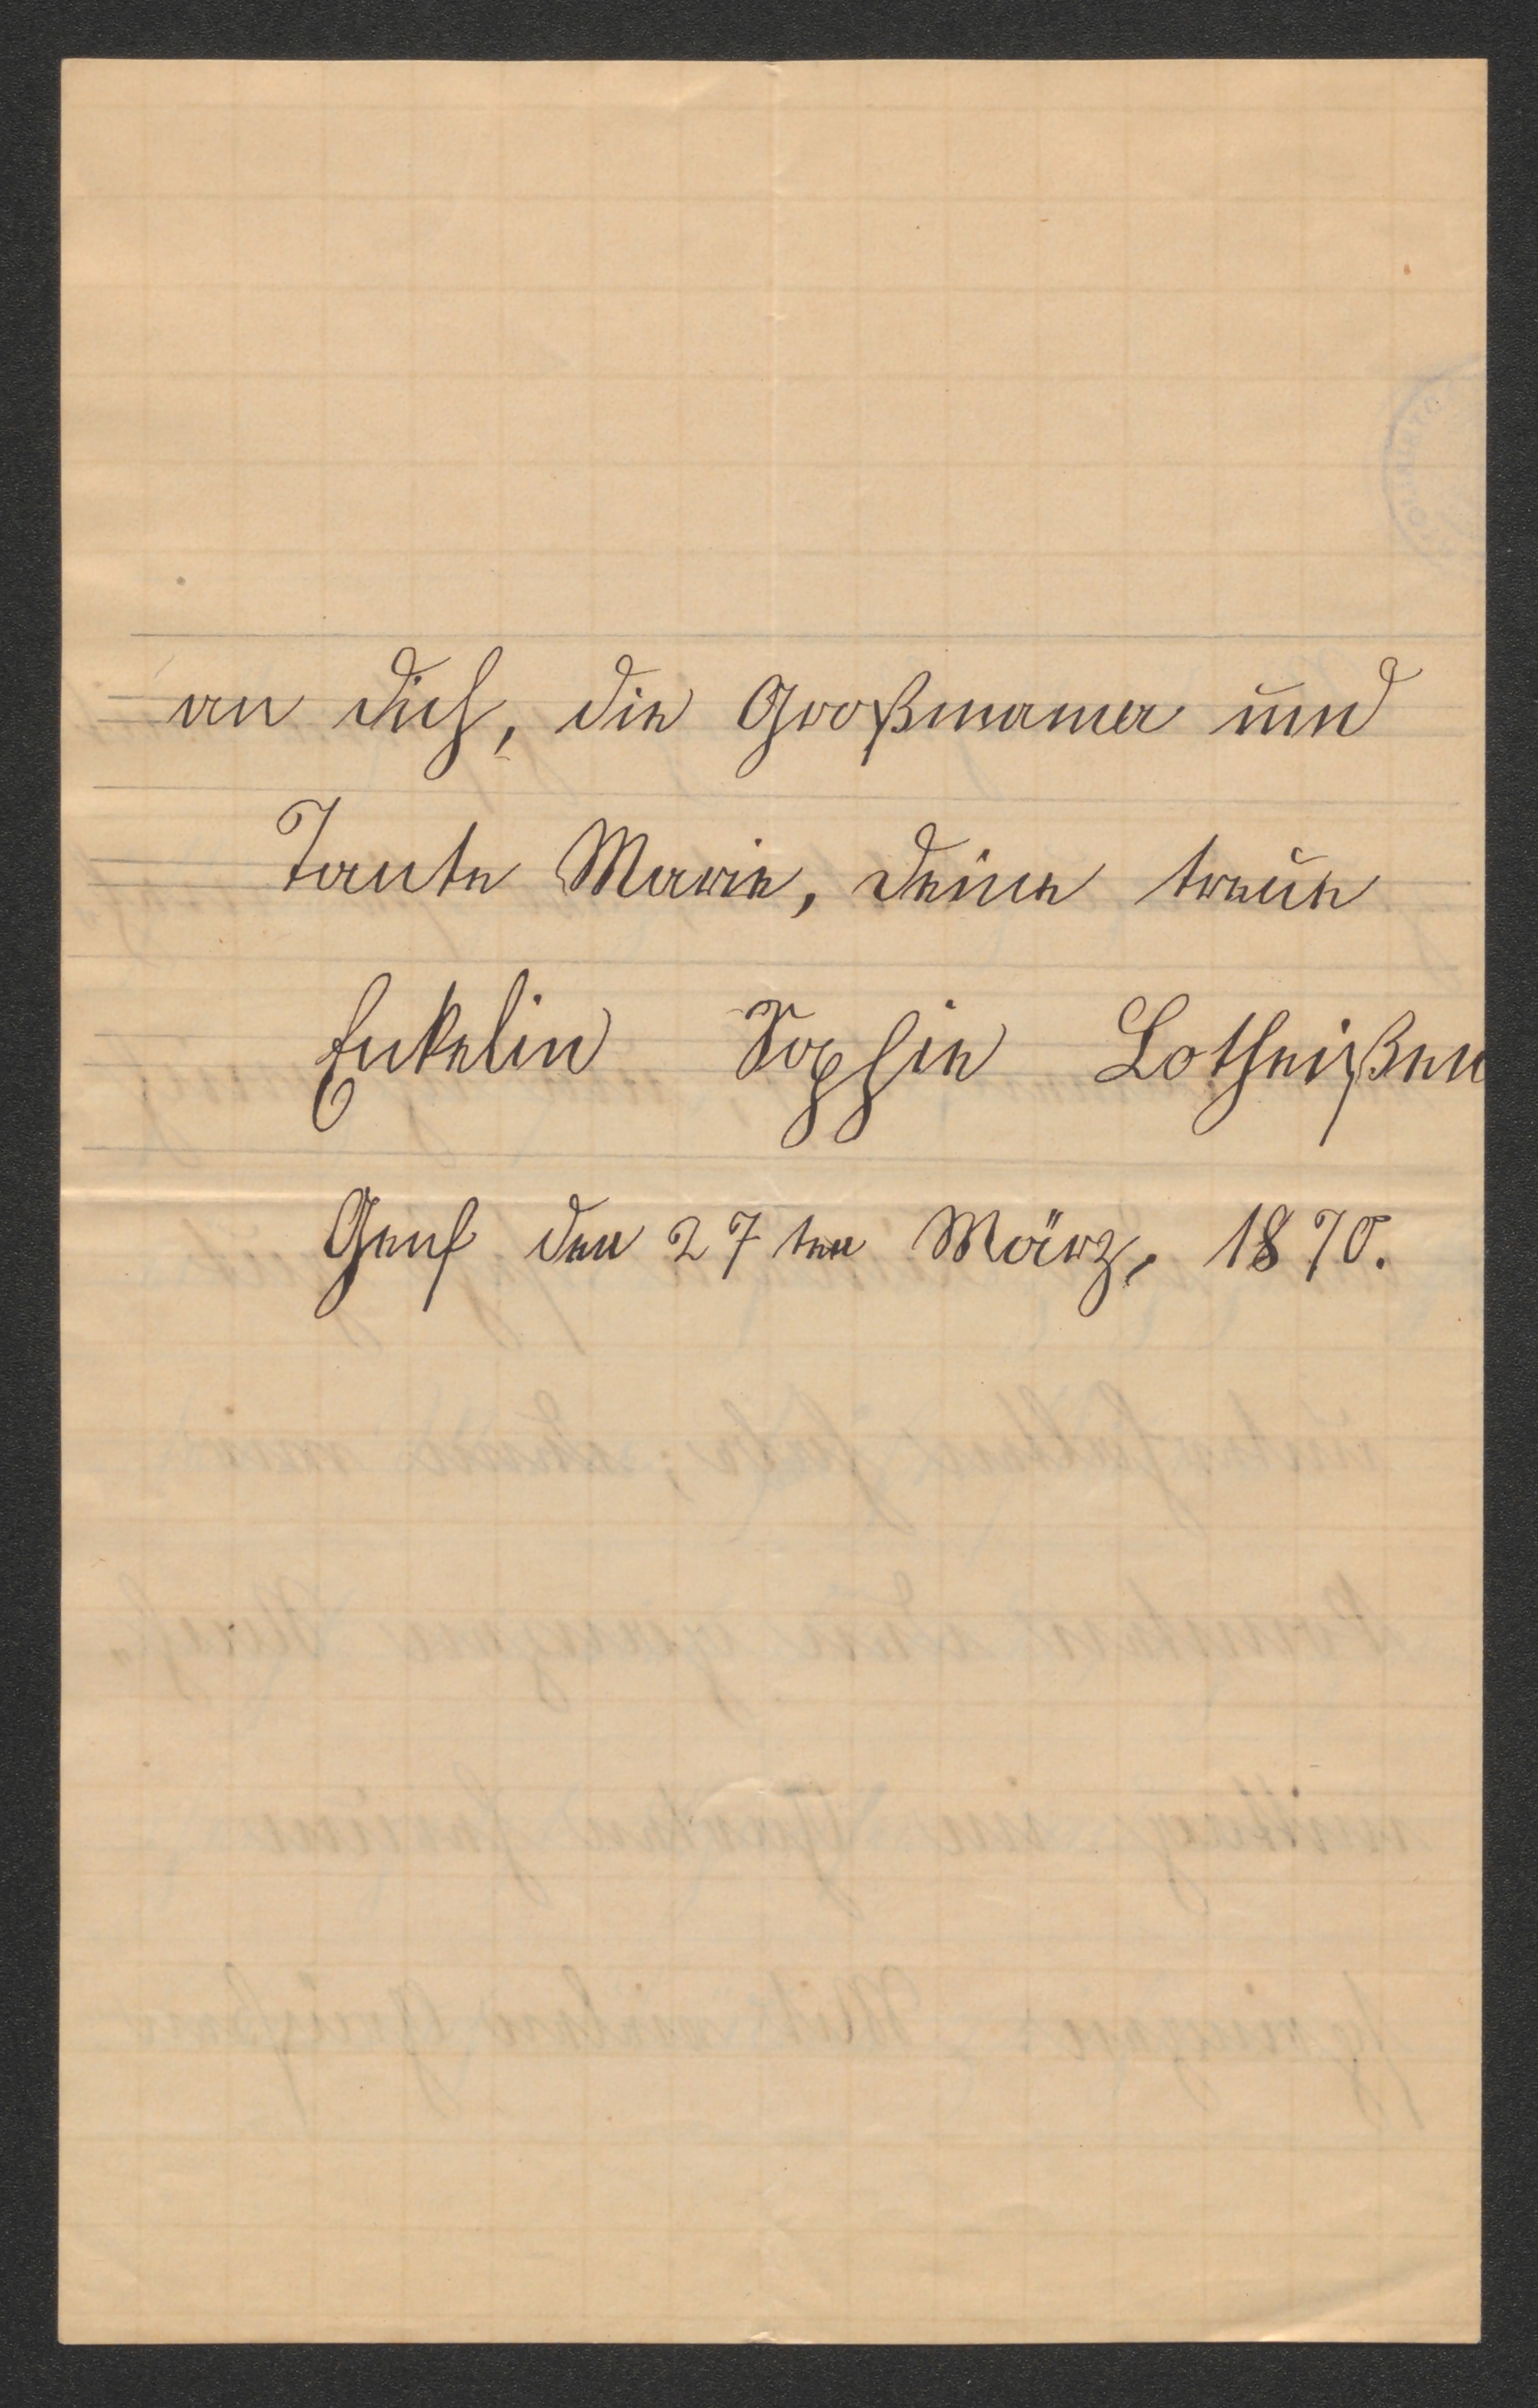 an dich, die Großmama und
Tante Marie, deine treue
Enkelin Sophie Lotheißen
Genf den 27ten März, 1870.